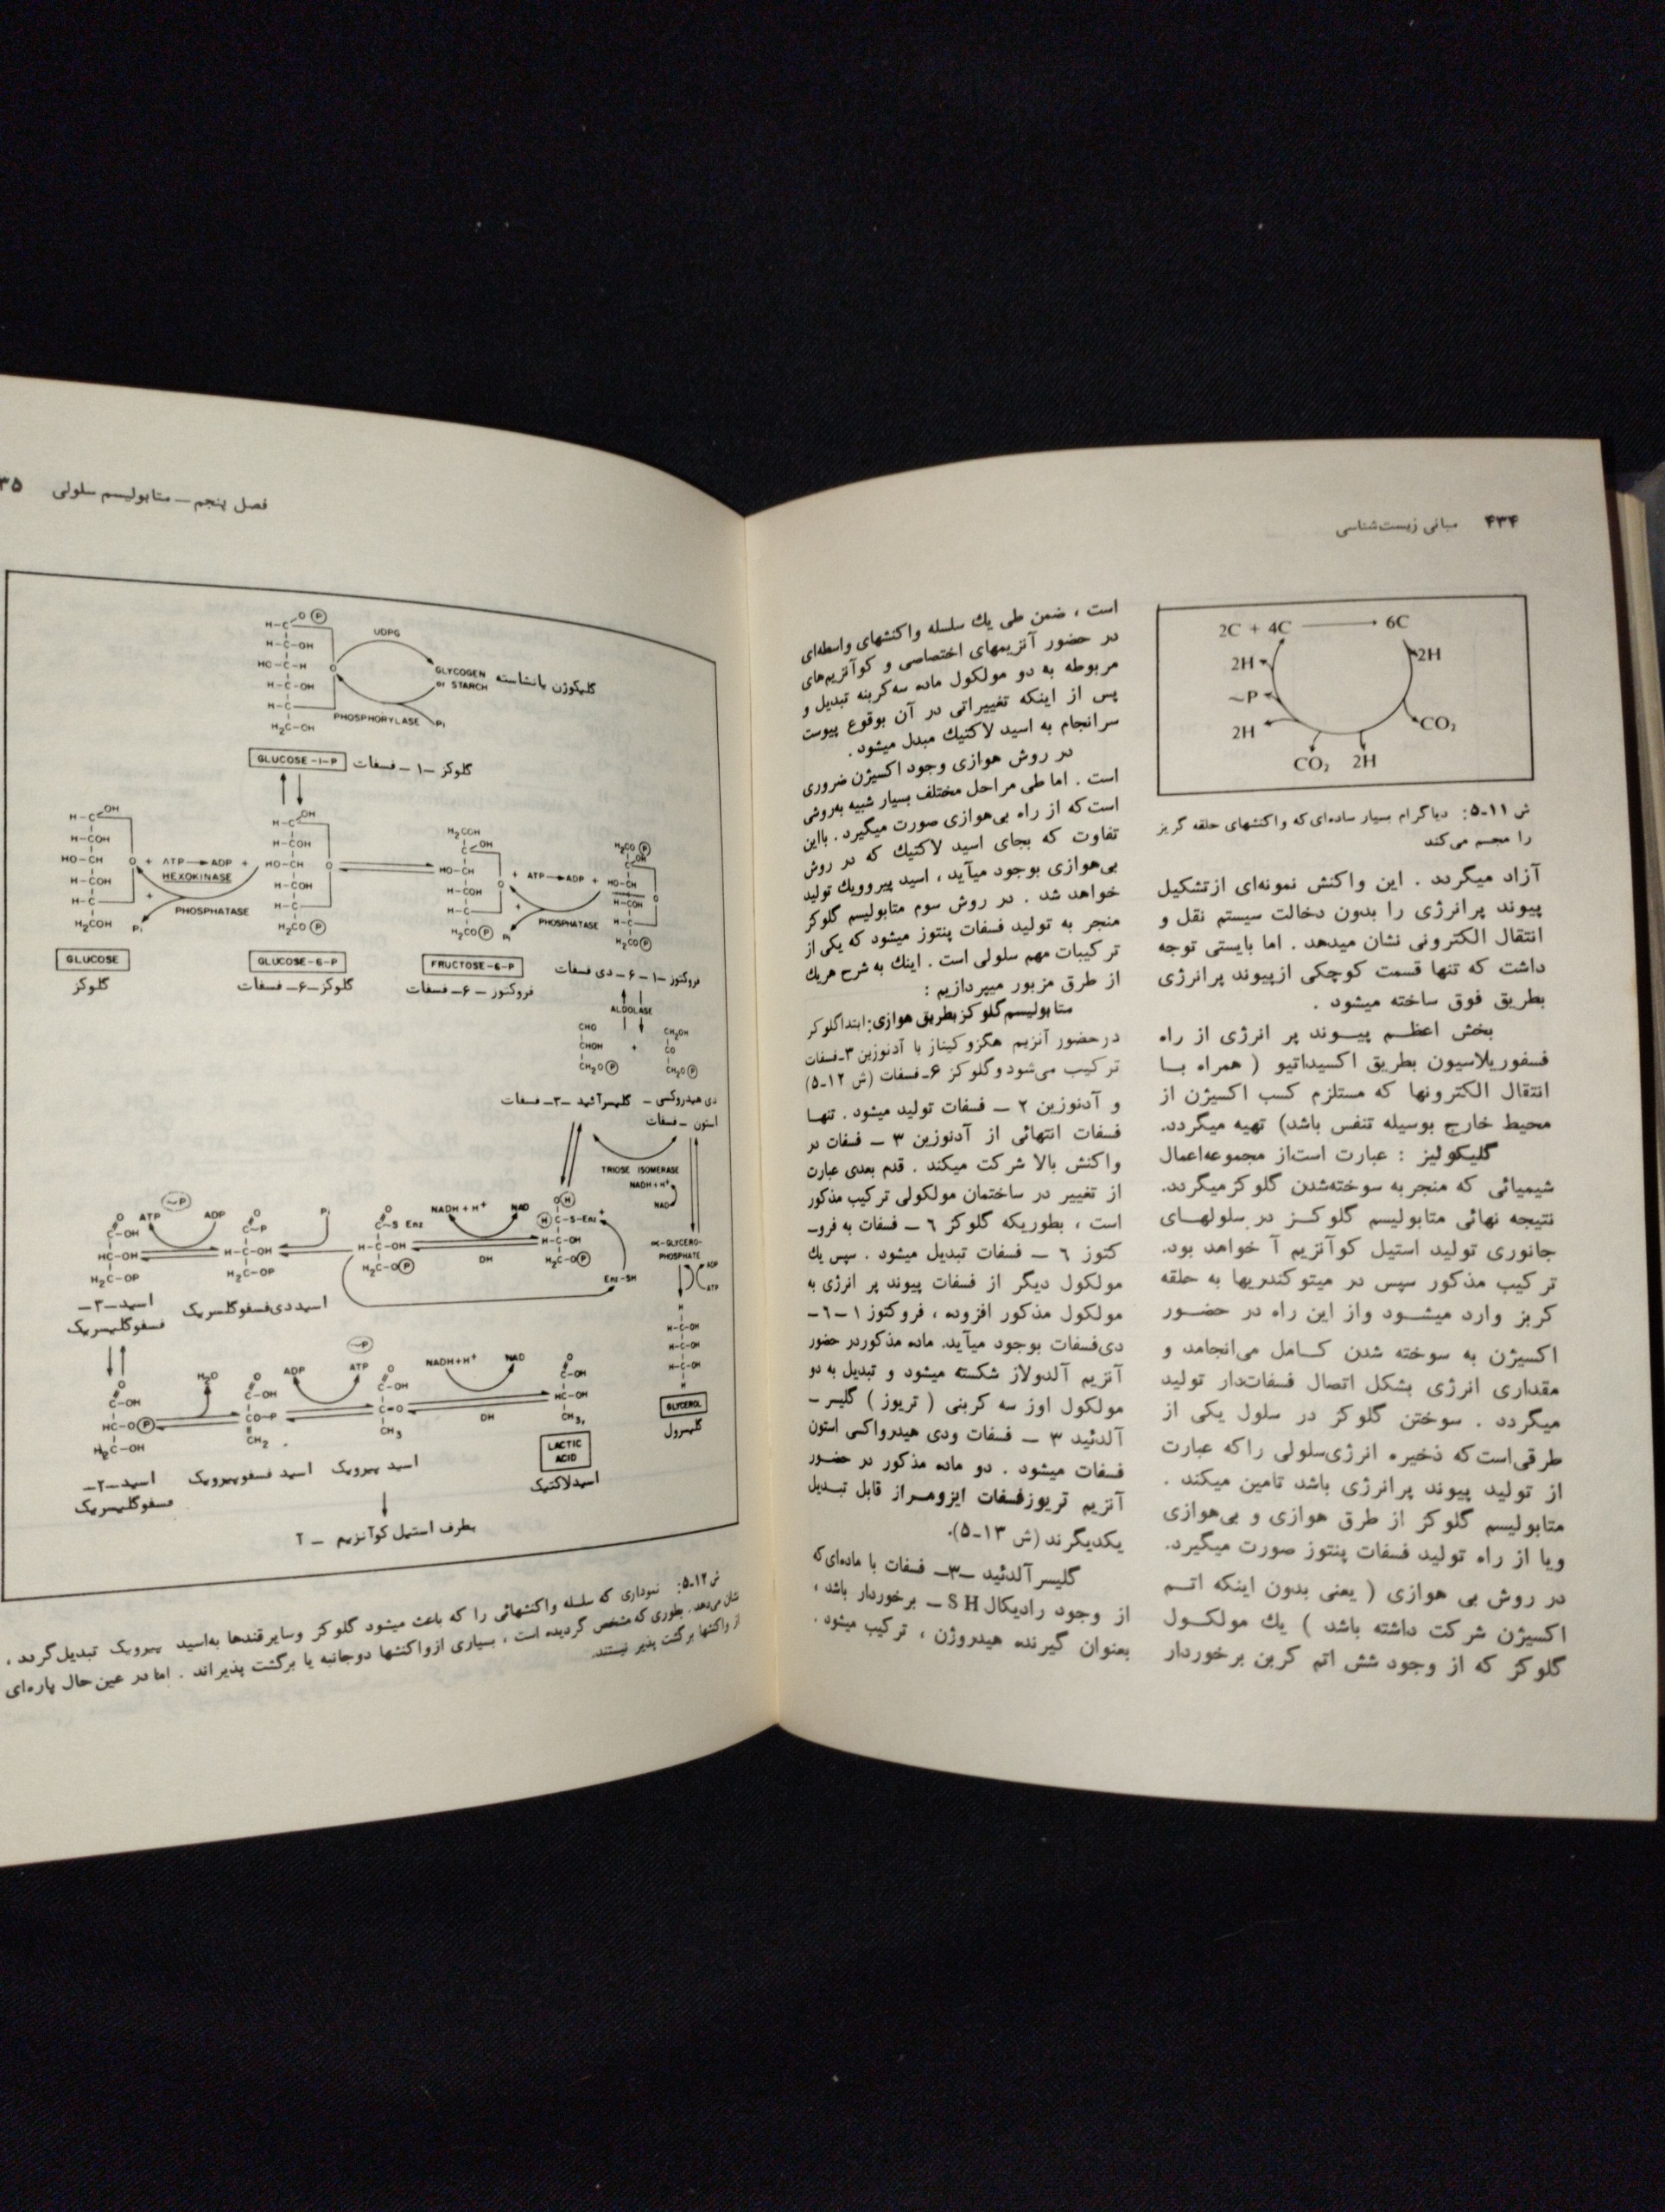 ۴۳۴ مبانی زیست‌شناسی
2C + 4C → 6C
2H 2H
~P
2H CO₂
CO₂ 2H
ش ۱۱-۵: دیاگرام بسیار ساده‌ای که واکنشهای حلقه گریز
را مجسم می‌کند
آزاد میگردد . این واکنش نمونه‌ای ازتشکیل
پیوند پرانرژی را بدون دخالت سیستم نقل و
انتقال الکترونی نشان میدهد . اما بایستی توجه
داشت که تنها قسمت کوچکی ازپیوند پرانرژی
بطریق فوق ساخته میشود .
بخش اعظم پیوند پر انرژی از راه
فسفوریلاسیون بطریق اکسیداتیو ( همراه با
انتقال الکترونها که مستلزم کسب اکسیژن از
محیط خارج بوسیله تنفس باشد) تهیه میگردد.
گلیکولیز : عبارت است‌از مجموعه‌اعمال
شیمیائی که منجربه سوخته‌شدن گلوکزمیگردد.
نتیجه نهائی متابولیسم گلوکز در سلولهای
جانوری تولید استیل کوآنزیم آ خواهد بود.
ترکیب مذکور سپس در میتوکندریها به حلقه
کربز وارد میشود واز این راه در حضور
اکسیژن به سوخته شدن کامل می‌انجامد و
مقداری انرژی بشکل اتصال فسفات‌دار تولید
میگردد . سوختن گلوکز در سلول یکی از
طرقی‌است‌که ذخیره انرژی‌سلولی راکه عبارت
از تولید پیوند پرانرژی باشد تامین میکند .
متابولیسم گلوکز از طرق هوازی و بی‌هوازی
ویا از راه تولید فسفات پنتوز صورت میگیرد.
در روش بی هوازی ( یعنی بدون اینکه اتم
اکسیژن شرکت داشته باشد ) یك مولکول
گلوکز که از وجود شش اتم کربن برخوردار
است ، ضمن طی یك سلسله واکنشهای واسطه‌ای
در حضور آنزیمهای اختصاصی و کوآنزیم‌های
مربوطه به دو مولکول ماده سه‌کربنه تبدیل و
پس از اینکه تغییراتی در آن بوقوع پیوست
سرانجام به اسید لاکتیك مبدل میشود .
در روش هوازی وجود اکسیژن ضروری
است . اما طی مراحل مختلف بسیار شبیه به‌روشی
است‌که از راه بی‌هوازی صورت میگیرد . بااین
تفاوت که بجای اسید لاکتیك که در روش
بی‌هوازی بوجود میآید ، اسید پیروویك تولید
خواهد شد . در روش سوم متابولیسم گلوکز
منجر به تولید فسفات پنتوز میشود که یکی از
ترکیبات مهم سلولی است . اینك به شرح هریك
از طرق مزبور میپردازیم :
متابولیسم گلوکز بطریق هوازی: ابتداگلوکز
درحضور آنزیم هگزوکیناز با آدنوزین ۳-فسفات
ترکیب می‌شود وگلوکز ۶-فسفات (ش ۱۲-۵)
و آدنوزین ۲ – فسفات تولید میشود . تنها
فسفات انتهائی از آدنوزین ۳ – فسفات در
واکنش بالا شرکت میکند . قدم بعدی عبارت
از تغییر در ساختمان مولکولی ترکیب مذکور
است ، بطوریکه گلوکز ٦ – فسفات به فرو–
کتوز ٦ – فسفات تبدیل میشود . سپس یك
مولکول دیگر از فسفات پیوند پر انرژی به
مولکول مذکور افزوده ، فروکتوز ۱ – ٦ –
دی‌فسفات بوجود میآید. ماده مذکوردر حضور
آنزیم آلدولاز شکسته میشود و تبدیل به دو
مولکول اوز سه کربنی ( تریوز ) گلیسر –
آلدئید ۳ – فسفات ودی هیدرواکسی استون
فسفات میشود . دو ماده مذکور در حضور
آنزیم تریوزفسفات ایزومراز قابل تبدیل
یکدیگرند (ش ۱۳-۵).
گلیسرآلدئید –۳– فسفات با ماده‌ای که
از وجود رادیکال SH – برخوردار باشد ،
بعنوان گیرنده هیدروژن ، ترکیب میشود .
فصل پنجم – متابولیسم سلولی ۳۵
H-C-O-P
H-C-OH
HO-C-H O
H-C-OH
H-C
H₂C-OH
UDPG
GLYCOGEN or STARCH گلیکوژن یانشاسته
PHOSPHORYLASE Pi
GLUCOSE-1-P گلوکز –۱ – فسفات
H-C-OH
H-COH
HO-CH O + ATP → ADP +
HEXOKINASE
H-COH
H-C
H₂COH
PHOSPHATASE
Pi
H-C-OH
H-COH
HO-CH O
H-COH
H-C
H₂CO P
H₂COH
C-OH
HO-CH O + ATP → ADP +
H-COH
H-C
H₂CO P
PHOSPHATASE
Pi
H₂CO P
C-OH
HO-CH
H-COH O
H-C
H₂CO P
GLUCOSE GLUCOSE-6-P FRUCTOSE-6-P
گلوکز گلوکز–۶– فسفات فروکتوز – ۶– فسفات فروکتوز –۱ – ۶– دی فسفات
ALDOLASE
CHO CH₂OH
CHOH + CO
CH₂O P CH₂O P
گلیسرآئید –۳– فسفات
دی هیدروکسی –
استون – فسفات
TRIOSE ISOMERASE
NADH+H⁺
NAD
~P
ATP ADP Pi NADH + H⁺ NAD
O
C-OH
HC-OH
H₂C-OP
O
C-P
H-C-OH
H₂C-OP
O
C~S Enz
H-C-OH
H₂C-O P
DH
O H
H C-S-Enz
H-C-OH
H₂C-O P
Enz-SH
∝-GLYCERO-
PHOSPHATE
ADP
ATP
اسید–۳–
فسفوگلیسریک
اسیددی‌فسفوگلسریک
H
H-C-OH
H-C-OH
H-C-OH
H
GLYCEROL
گلیسرول
~P
H₂O ADP ATP NADH+H⁺ NAD
O
C-OH
HC-O P
H₂C-OH
O
C-OH
CO-P
CH₂
O
C-OH
C=O
CH₃
DH
O
C-OH
HC-OH
CH₃
LACTIC
ACID
اسید–۲–
فسفوگلیسریک
اسید فسفوپیرویک
اسید پیرویک
اسیدلاکتیک
بطرف استیل کوآنزیم – آ
ش ۱۲-۵: نموداری که سلسله واکنشهائی را که باعث میشود گلوکز وسایرقندها به‌اسید پیرویک تبدیل‌گردد ،
نشان می‌دهد . بطوری‌که مشخص گردیده است ، بسیاری ازواکنشها دوجانبه یا برگشت پذیراند . اما در عین‌حال پاره‌ای
از واکنشها برگشت پذیر نیستند.